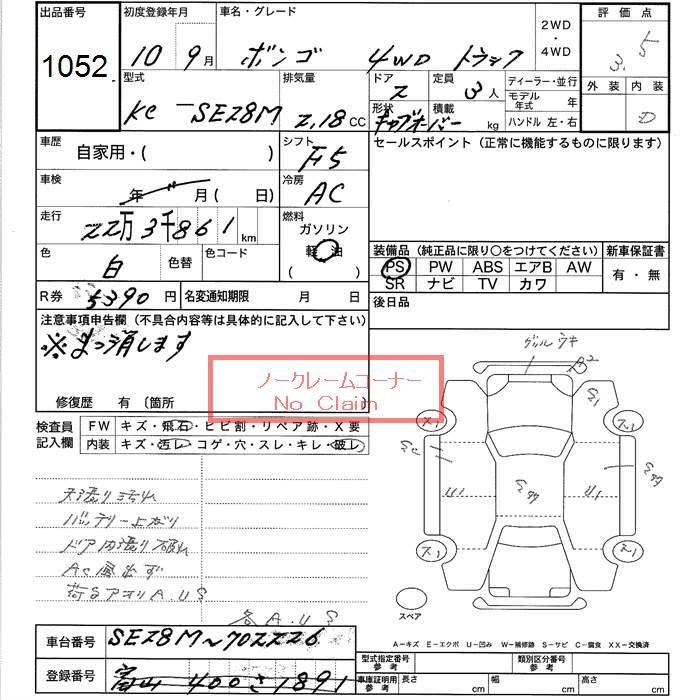 出品番号
1052
初度登録年月
10 9月
車名・グレード
ボンゴ 4WD トラック
2WD
・
4WD
評価点
3.5
外装 内装
D
型式
KC-SE28M
排気量
2.18 CC
ドア
2
定員
3人
形状
キャブオーバー
積載
kg
ディーラー・並行
モデル年式 年
ハンドル 左・右
車歴
自家用・( )
シフト
F5
セールスポイント (正常に機能するものに限ります)
車検
年 月( 日)
冷房
AC
走行
22万3千861km
燃料
ガソリン
軽油
( )
色
白
色替
色コード
装備品 (純正品に限り〇をつけてください)
PS PW ABS エアB AW
SR ナビ TV カワ
新車保証書
有・無
R券 5390円
名変通知期限 月 日
後日品
注意事項申告欄 (不具合内容等は具体的に記入して下さい)
※まっ消します
修復歴 有 (箇所 )
ノークレームコーナー
No Claim
検査員記入欄
FW キズ・飛石・ヒビ割・リペア跡・X要
内装 キズ・汚レ・コゲ・穴・スレ・キレ・破レ
天張り汚れ
バッテリー上がり
ドア内張り破れ
AC風出ず
荷台アオリ A.U.S
各A.U.S
グリルウキ
スペア
A−キズ E−エクボ U−凹み W−補修跡 S−サビ C−腐食 XX−交換済
車台番号
SE28M~702226
登録番号
富山 400 さ 1891
型式指定番号 参考
類別区分番号 参考
車庫証明用 参考
長さ cm
幅 cm
高さ cm